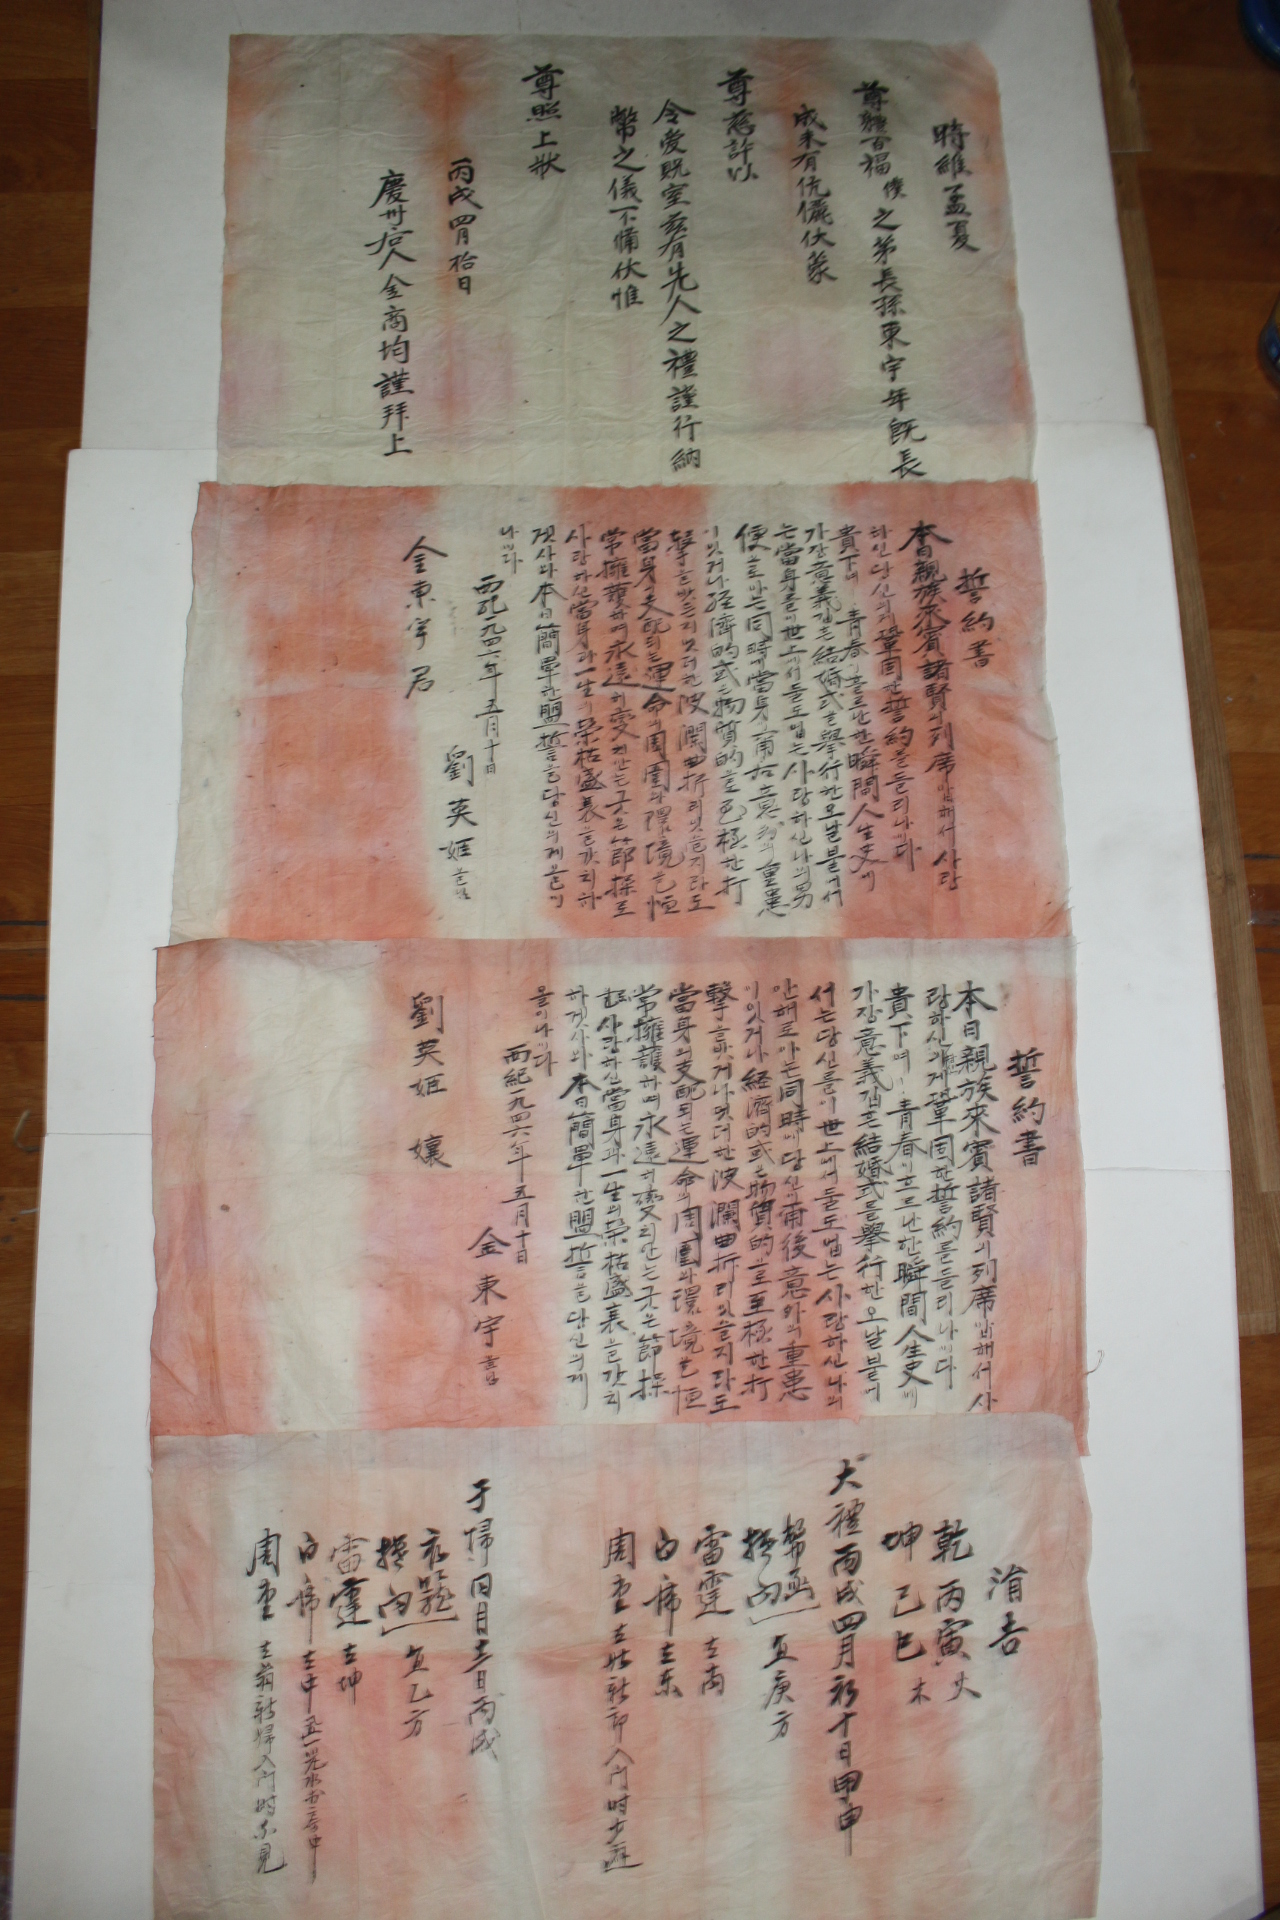 時維孟夏
尊體百福 僕之弟長孫東宇年旣長
成未有伉儷伏蒙
尊慈許以
令愛貺室玆有先人之禮謹行納
幣之儀不備伏惟
尊照上狀
丙戌四月拾日
慶州后人金商均謹拜上
誓約書
本日親族來賓諸賢의列席압헤서사랑
하신당신의게鞏固한誓約을들리나이다
貴下여 靑春이흐르난한瞬間人生史에
가장意義깁흔結婚式을擧行한오날붙에서
는當身을이世上에서둘도업는사랑하신나의男
便으로아는同時에當身이
이잇거나経済的或은物質的으로至極한打
擊을밧든지멋더한波瀾曲折리잇을지라도
當身의支配되는運命의周圍와環境을恒
常擁護하며永遠히変치안는구든節操로
사랑하신當身과一生의榮枯盛衰을갓치하
겟사와本日簡單한盟誓을당신의게올이
나이다
西紀一九四六年五月十日
劉英姬올님
金東宇君
誓約書
本日親族來賓諸賢의列席압헤서사
랑하신 게鞏固한誓約을들리나이다
貴下여 靑春이흐르난한瞬間人生史에
가장意義깁흔結婚式을擧行한오날붙에
서는당신을이世上에서둘도업는사랑하신나의
안해로아는同時에당신이前後意外의重患
이잇거나経済的或은物質的으로至極한打
擊을밧거나멋더한波瀾曲折리잇을지라도
當身의支配되는運命의周圍와環境을恒
常擁護하며永遠히変치안는구든節操
로사랑하신當身과一生의榮枯盛衰을갓치
하겟사와本日簡單한盟誓을당신의게
올이나이다
西紀一九四六年五月十日
金東宇올님
劉英姬 孃
涓吉
乾丙寅火
坤己巳木
大禮丙戌四月初十日甲申
幣函
向 宜庚方
雷霆 在
白席 在東
周堂 在 新郞入門時少避
于帰同月十二日丙戌
向 宜乙方
雷霆 在坤
白席 在中
周堂 在翁新婦入門時不見